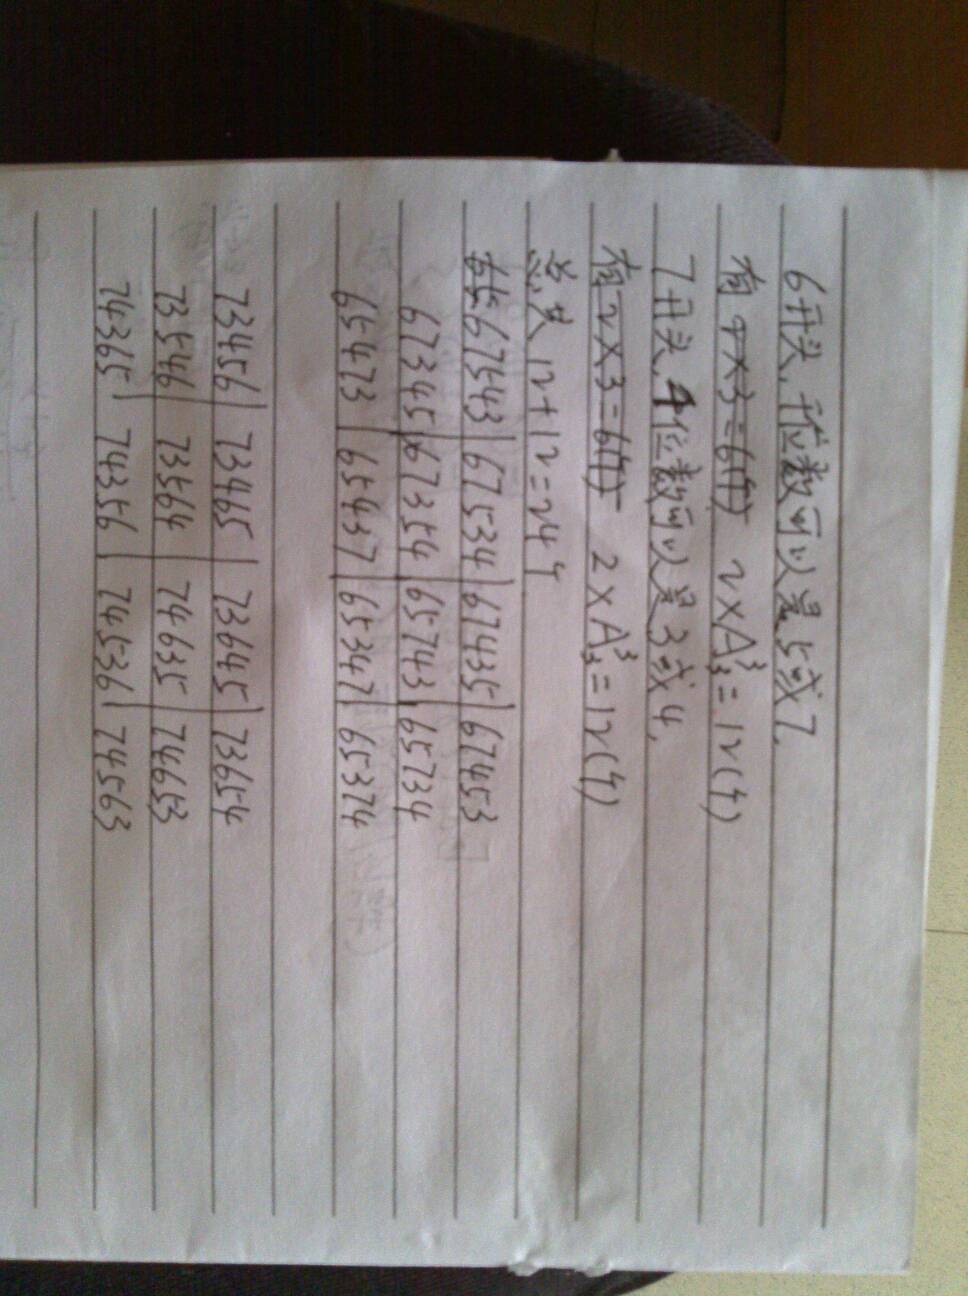 6开头,千位数可以是5或7,
有2×3=6(个) 2×A³₃=12(个)
7开头,千位数可以是3或4,
有2×3=6(个) 2×A³₃=12(个)
总共12+12=24个
67543|67534|67435|67453
67345|67354|65743|65734
65473|65437|65347|65374
73456|73465|73645|73654
73546|73564|74635|74653
74365|74356|74536|74563